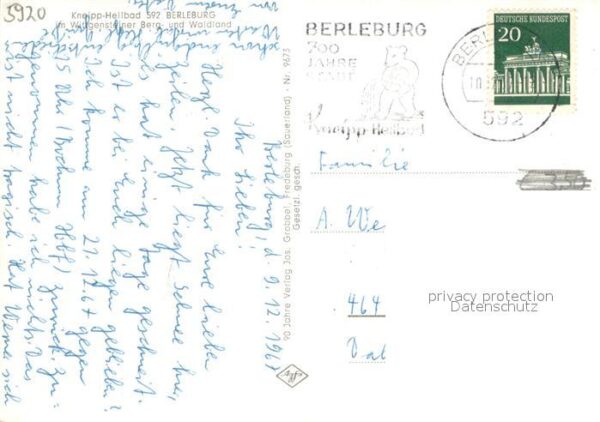 5920
Kneipp-Heilbad 592 BERLEBURG
im Wittgensteiner Berg- und Waldland
BERLEBURG
700
JAHRE
STADT
Kneipp-Heilbad
BERL
592
DEUTSCHE BUNDESPOST
20
90 Jahre Verlag Jos. Grobbel, Fredeburg (Sauerland) - Nr. 9673
Gesetzl. gesch.
Agfa
Berleburg, d. 9.12.1967
Ihr Lieben!
Herzl. Dank für Eure lieben
Zeilen. Jetzt liegt Schnee hier,
es hat einige Tage geschneit.
Ist er bei Euch liegen geblieben?
Ich komme am 21.12.67 gegen
15 Uhr (Bochum Hbf) zurück. Zu-
genommen habe ich nichts. Das
ist nicht tragisch. Hat Werner sich
Familie
A. We
464
Wat
privacy protection
Datenschutz